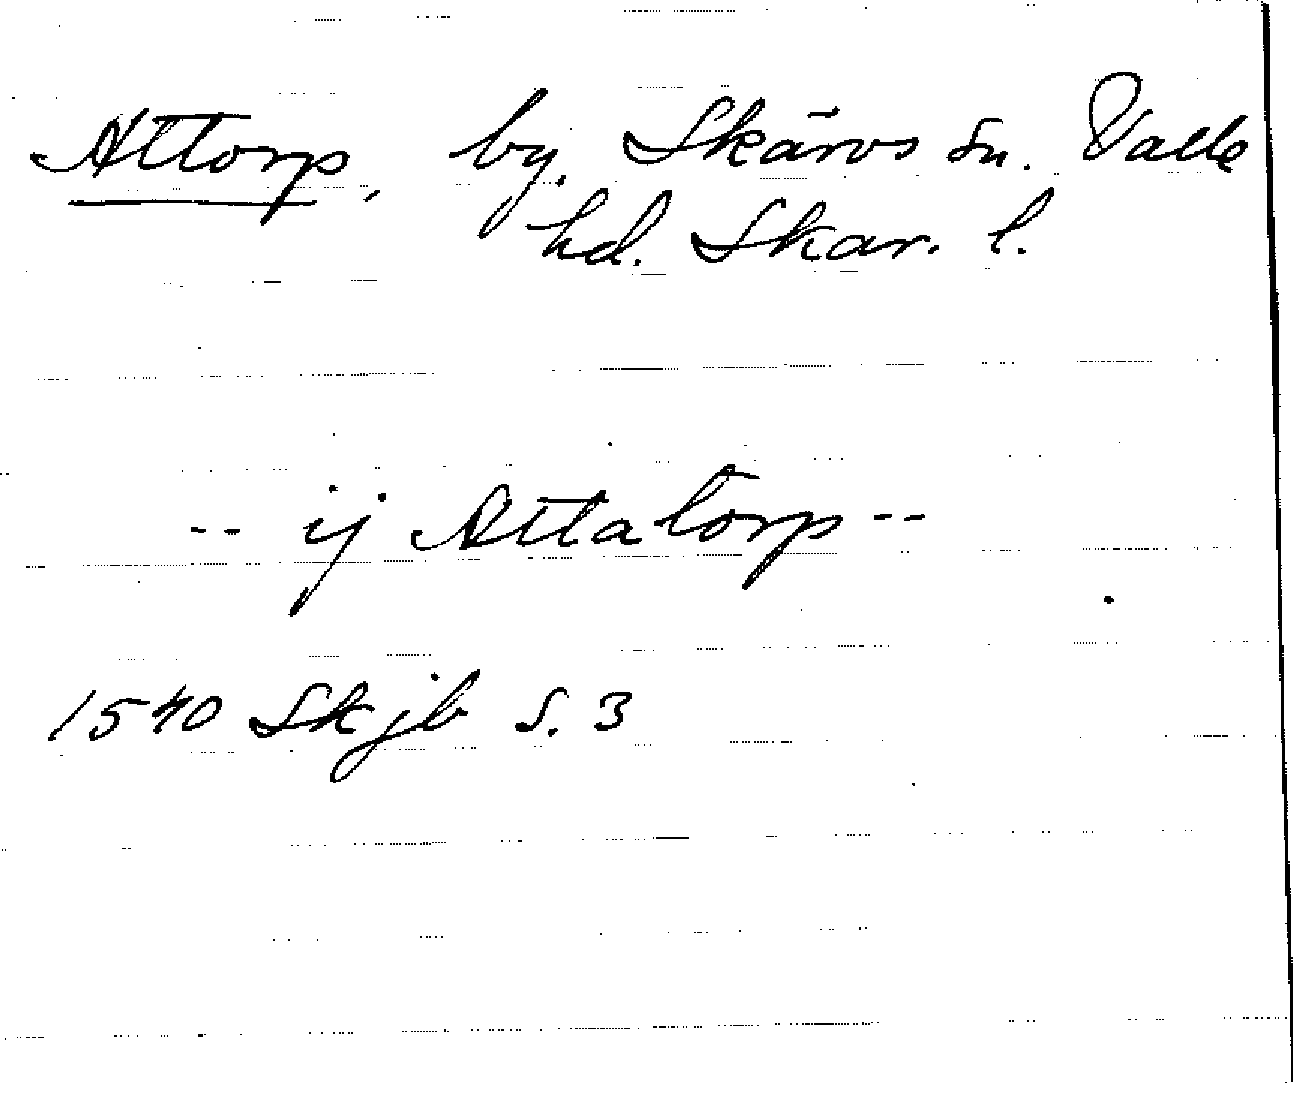 Attorp, by, Skärvs sn. Valle
hd. Skar. l.
-- ij Atta torp --
1540 Skjb S. 3